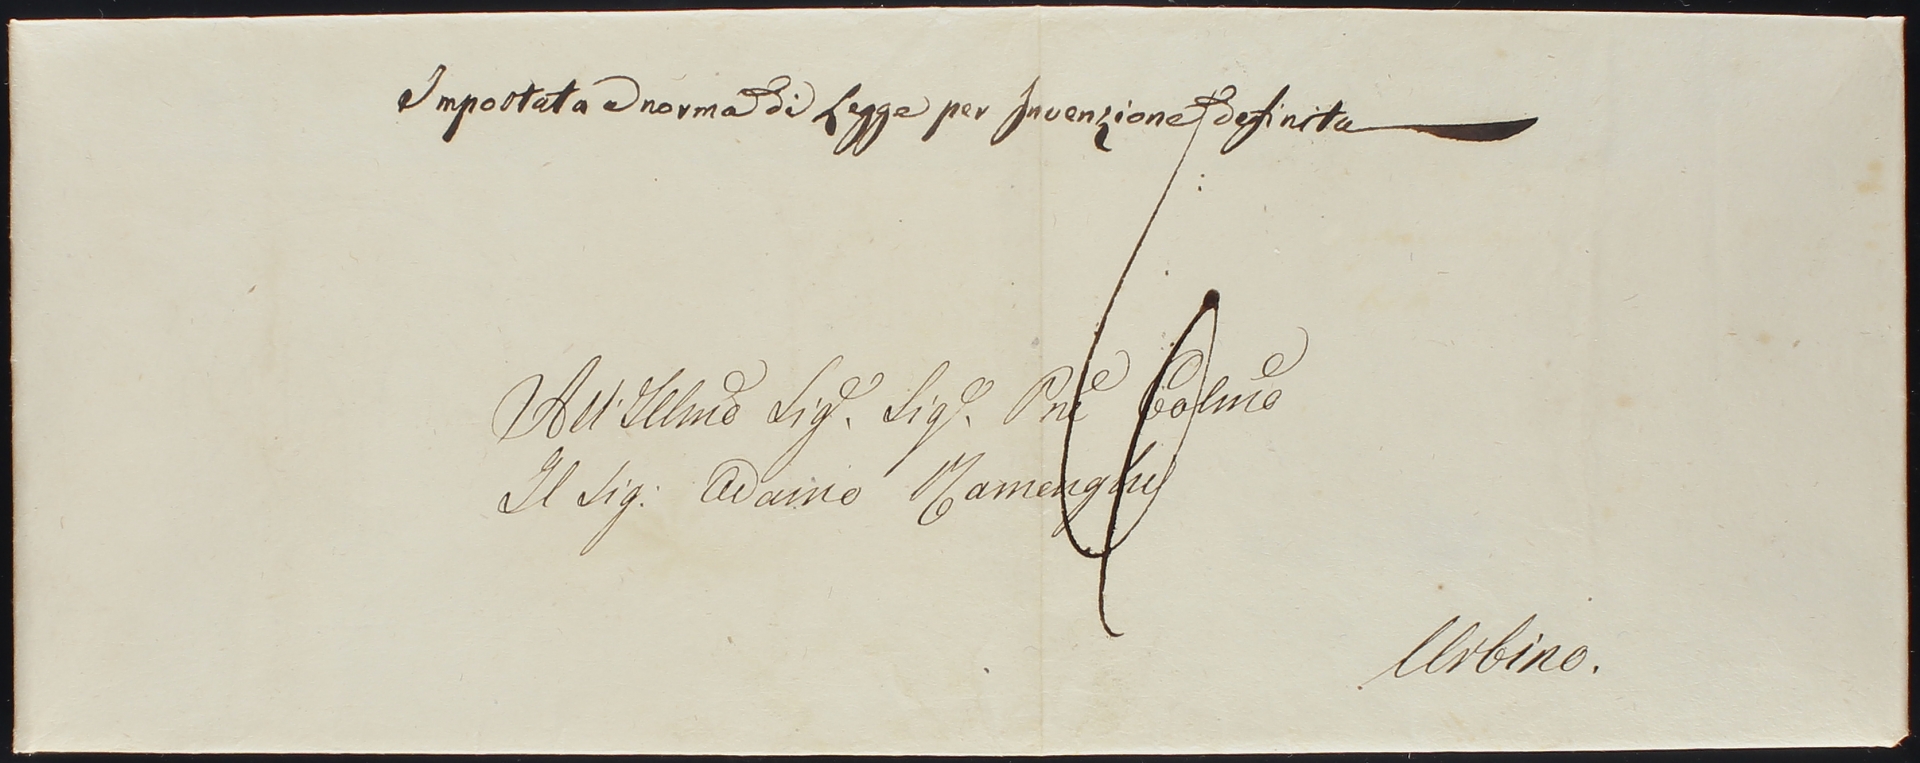 Impostata a norma di Legge per Invenzione definita
All' Illmo Sig.e Sig.e Pne Colmo
Il Sig: Adamo Ramenghi
Urbino.